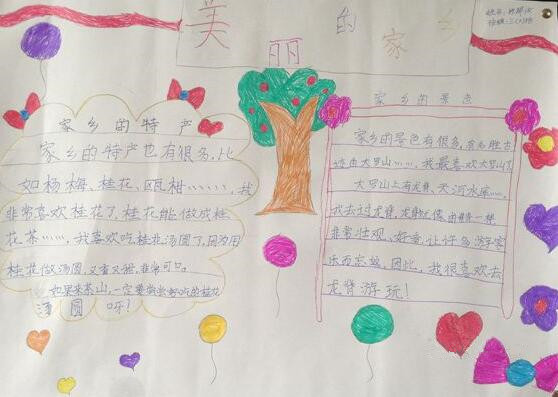 美丽的家乡
家乡的特产
家乡的特产也有很多,比
如杨梅、桂花、瓯柑……,我
非常喜欢桂花了,桂花能做成桂
花茶……,我喜欢吃桂花汤圆了,因为用
桂花做汤圆,又香又甜,非常可口。
如果来茶山,一定要尝尝好吃的桂花
汤圆呀!
家乡的景色
家乡的景色有很多,有名胜古
迹由大罗山……,我最喜欢大罗山了
大罗山上有龙脊,天河水库……,
我去过龙脊,龙脊就像由脊一样
非常壮观、好奇,让许多游客
乐而忘返,因此,我很喜欢去
龙脊游玩!